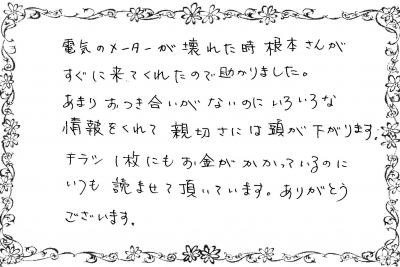 電気のメーターが壊れた時根本さんが
すぐに来てくれたので助かりました。
あまりおつき合いがないのにいろいろな
情報をくれて親切さには頭が下がります。
チラシ1枚にもお金がかかっているのに
いつも読ませて頂いています。ありがとう
ございます。